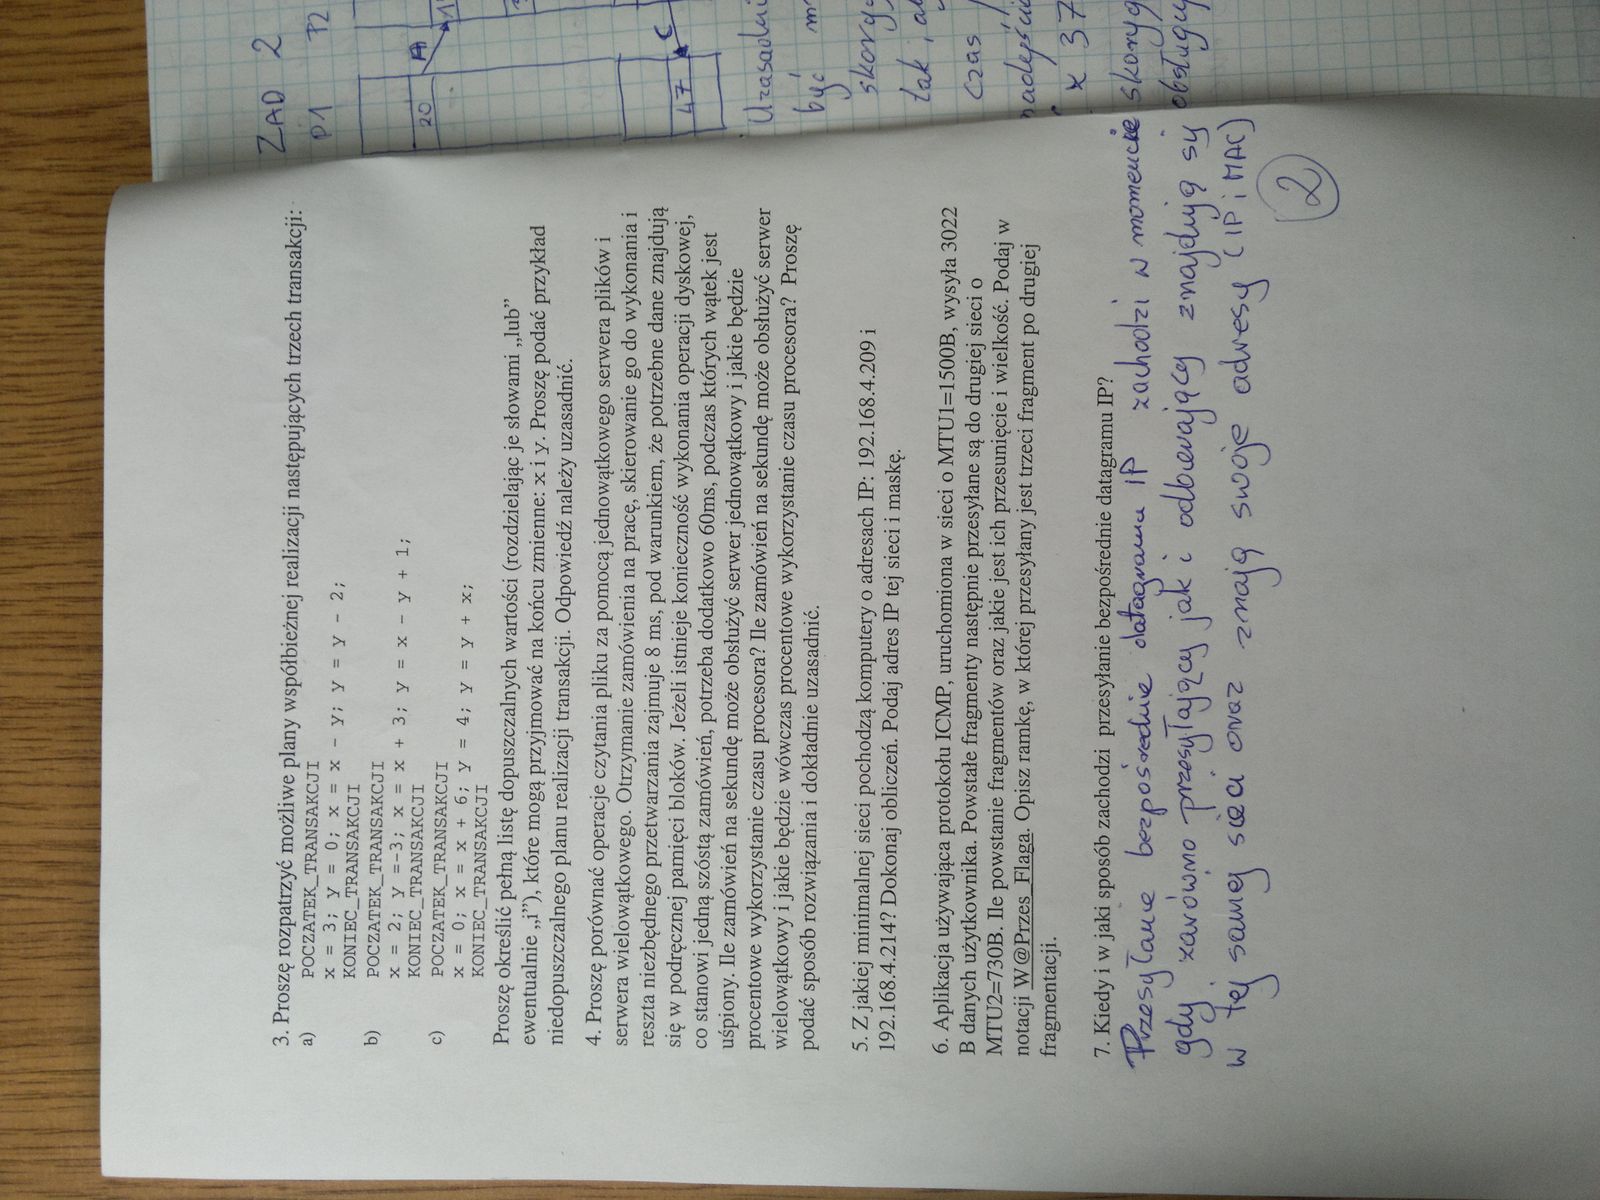 ZAD 2
P1 P2
20 A
47 C
Uzasadni
być m
skoryg
tak, a
czas
nadejści
x 37
skoryg
obsługu
3. Proszę rozpatrzyć możliwe plany współbieżnej realizacji następujących trzech transakcji:
a) POCZATEK_TRANSAKCJI
x = 3; y = 0; x = x - y; y = y - 2;
KONIEC_TRANSAKCJI
b) POCZATEK_TRANSAKCJI
x = 2; y =-3; x = x + 3; y = x - y + 1;
KONIEC_TRANSAKCJI
c) POCZATEK_TRANSAKCJI
x = 0; x = x + 6; y = 4; y = y + x;
KONIEC_TRANSAKCJI
Proszę określić pełną listę dopuszczalnych wartości (rozdzielając je słowami „lub”
ewentualnie „i”), które mogą przyjmować na końcu zmienne: x i y. Proszę podać przykład
niedopuszczalnego planu realizacji transakcji. Odpowiedź należy uzasadnić.
4. Proszę porównać operacje czytania pliku za pomocą jednowątkowego serwera plików i
serwera wielowątkowego. Otrzymanie zamówienia na pracę, skierowanie go do wykonania i
reszta niezbędnego przetwarzania zajmuje 8 ms, pod warunkiem, że potrzebne dane znajdują
się w podręcznej pamięci bloków. Jeżeli istnieje konieczność wykonania operacji dyskowej,
co stanowi jedną szóstą zamówień, potrzeba dodatkowo 60ms, podczas których wątek jest
uśpiony. Ile zamówień na sekundę może obsłużyć serwer jednowątkowy i jakie będzie
procentowe wykorzystanie czasu procesora? Ile zamówień na sekundę może obsłużyć serwer
wielowątkowy i jakie będzie wówczas procentowe wykorzystanie czasu procesora? Proszę
podać sposób rozwiązania i dokładnie uzasadnić.
5. Z jakiej minimalnej sieci pochodzą komputery o adresach IP: 192.168.4.209 i
192.168.4.214? Dokonaj obliczeń. Podaj adres IP tej sieci i maskę.
6. Aplikacja używająca protokołu ICMP, uruchomiona w sieci o MTU1=1500B, wysyła 3022
B danych użytkownika. Powstałe fragmenty następnie przesyłane są do drugiej sieci o
MTU2=730B. Ile powstanie fragmentów oraz jakie jest ich przesunięcie i wielkość. Podaj w
notacji W@Przes_Flaga. Opisz ramkę, w której przesyłany jest trzeci fragment po drugiej
fragmentacji.
7. Kiedy i w jaki sposób zachodzi przesyłanie bezpośrednie datagramu IP?
Przesyłanie bezpośrednie datagramu IP zachodzi w momencie
gdy zarówno przesyłający jak i odbierający znajdują się
w tej samej sieci oraz znają swoje adresy (IP i MAC)
2